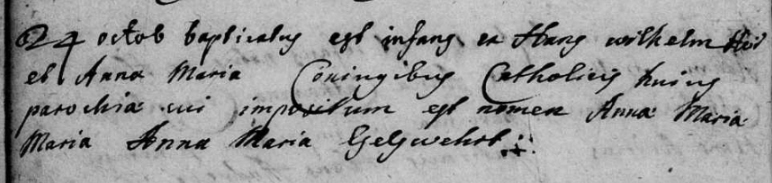 24 octob baptisatus est infans ex Hans wilhelm
et Anna Maria Coniugibus Catholicis huius
parochiæ cui impositum est nomen Anna Maria
Maria Anna Maria